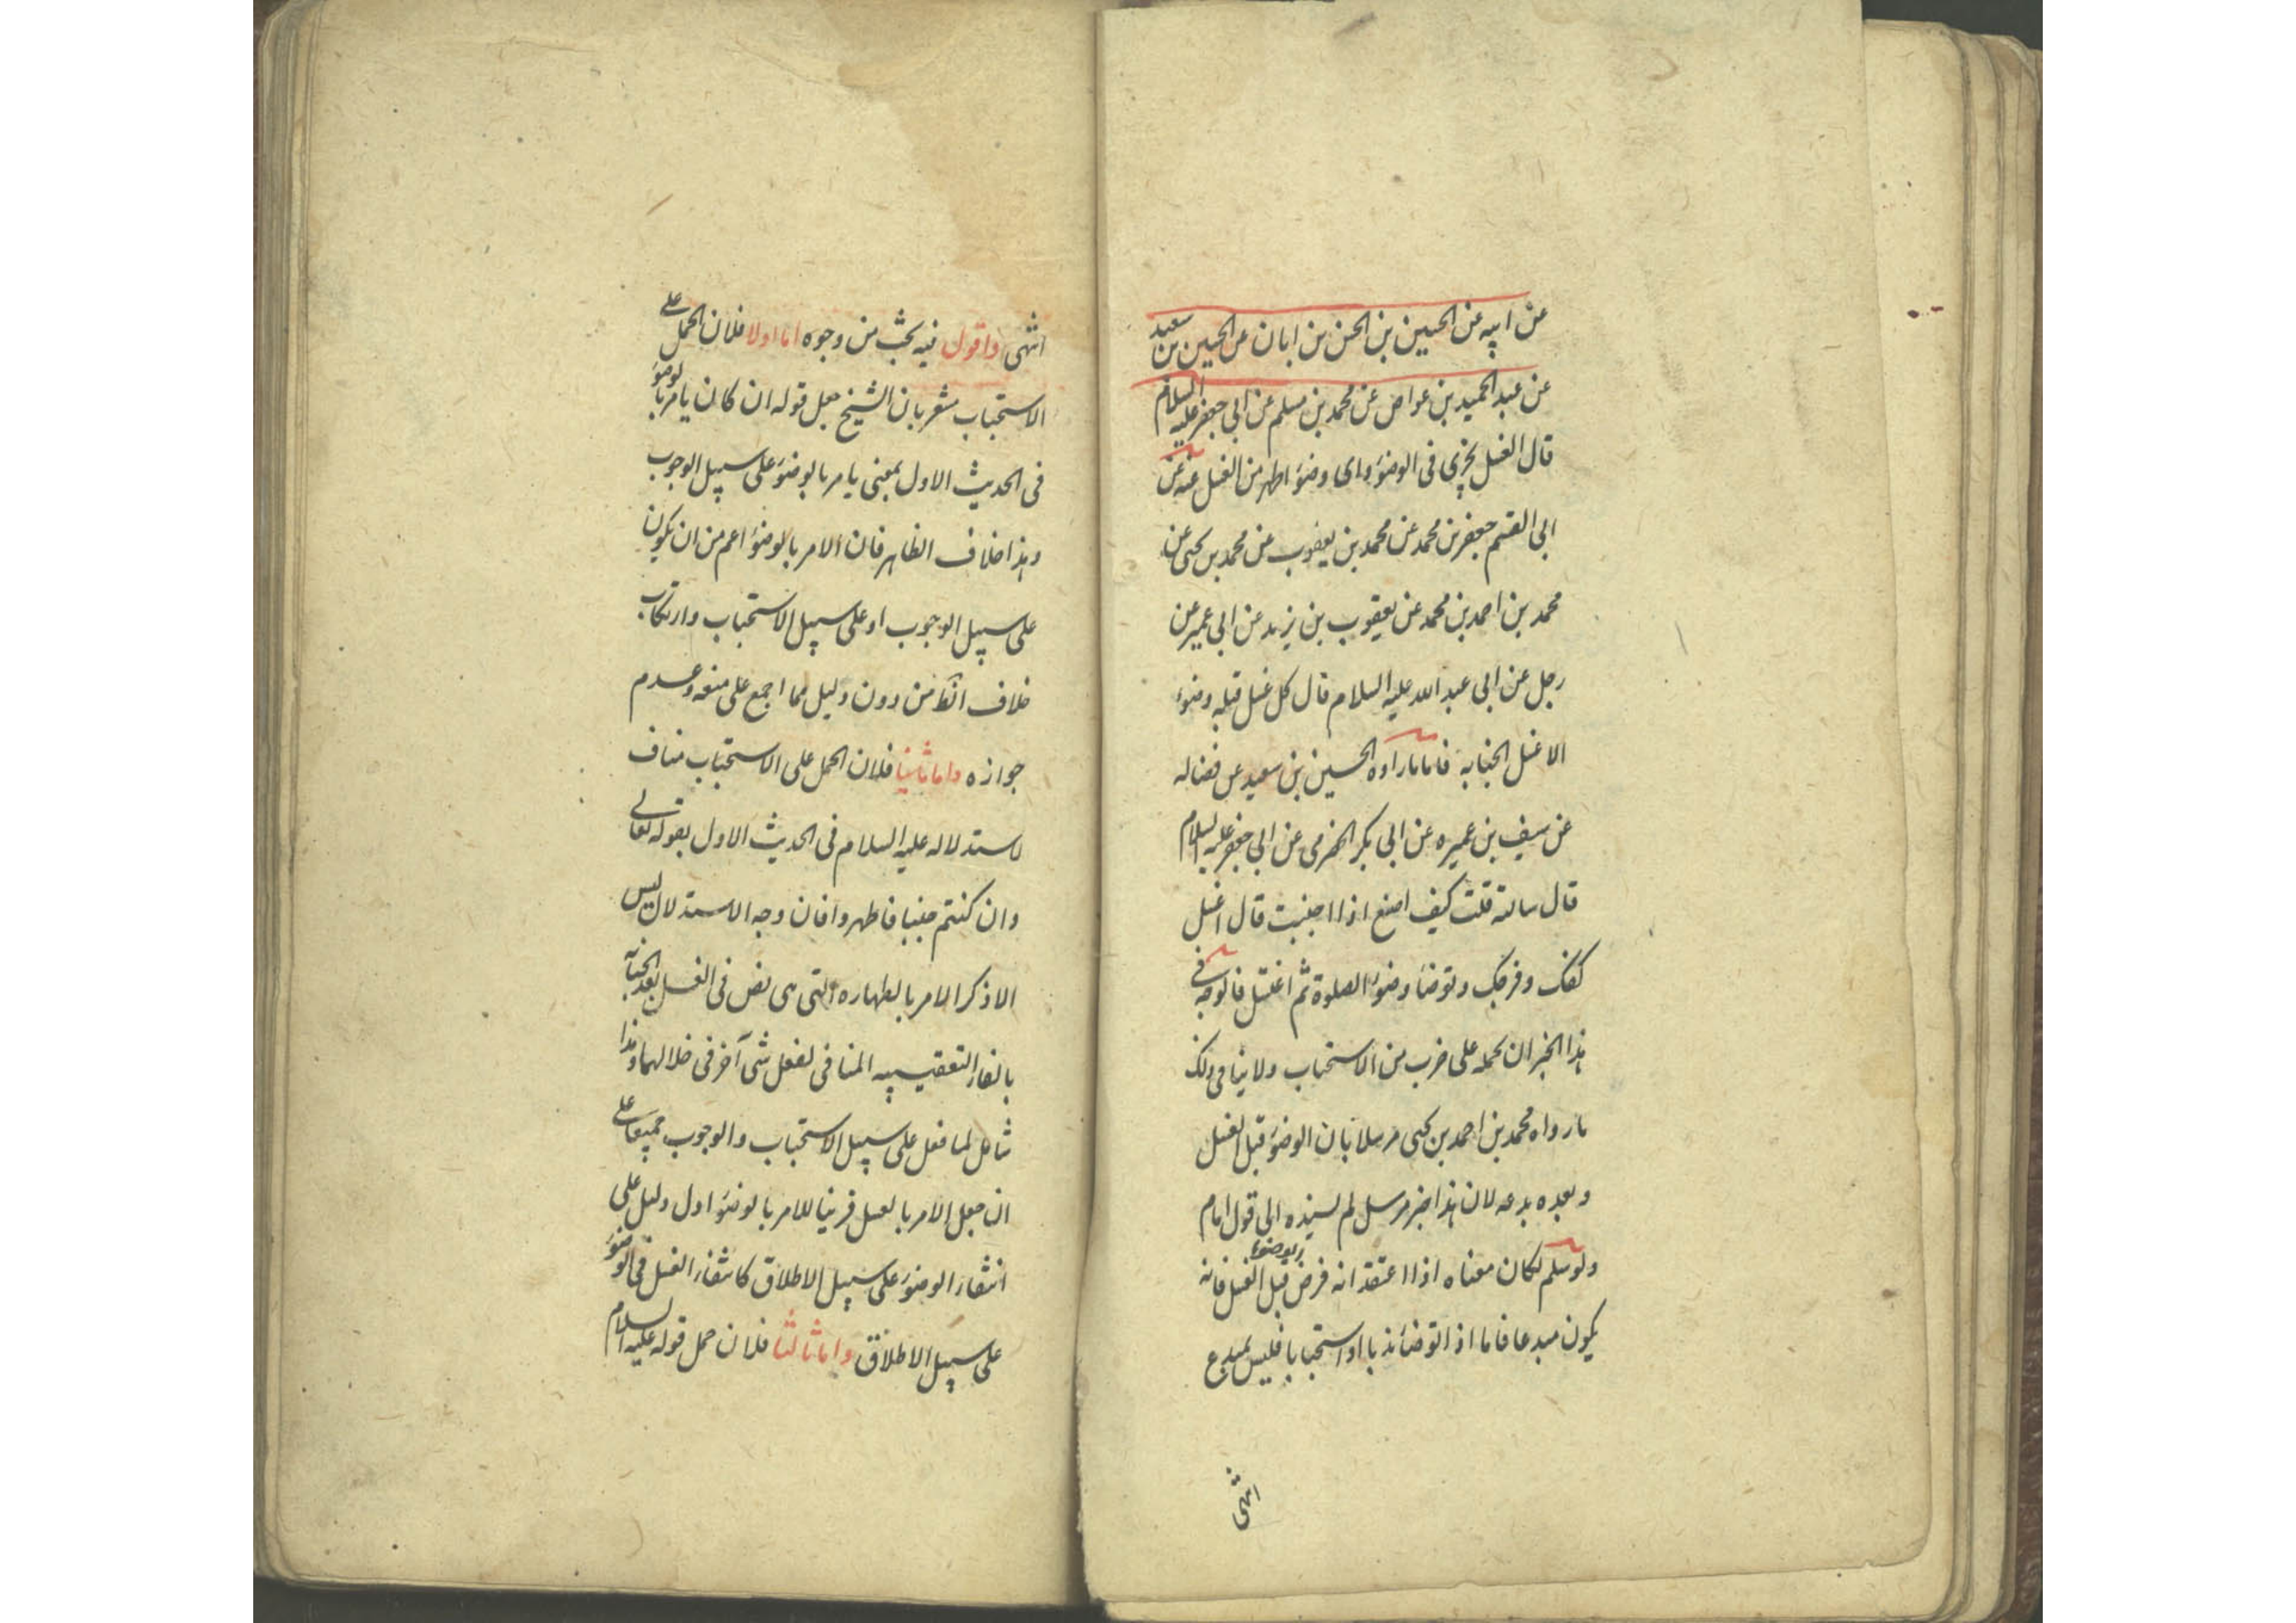 عن ابيه عن الحسين بن الحسن بن ابان عن الحسين بن سعيد
عن عبد الحميد بن عواض عن محمد بن مسلم عن ابي جعفر عليه السلام
قال الغسل يجزى فى الوضوء واى وضوء اطهر من الغسل عنه عن
ابى القسم جعفر بن محمد عن محمد بن يعقوب عن محمد بن يحيى عن
محمد بن احمد بن محمد عن يعقوب بن يزيد عن ابى عمير عن
رجل عن ابى عبد الله عليه السلام قال كل غسل قبله وضوء
الا غسل الجنابه فاما ماراوه الحسين بن سعيد عن فضاله
عن سيف بن عميره عن ابى بكر الحضرمى عن ابى جعفر عليه السلام
قال سالته قلت كيف اصنع اذا اجنبت قال اغسل
كفك وفرجك وتوضأ وضوء الصلوة ثم اغتسل فالوجه فى
هذا الخبر ان نحمله على ضرب من الاستحباب ولا ينافى ذلك
مارواه محمد بن احمد بن يحيى مرسلا بان الوضوء قبل الغسل
وبعده بدعه لان هذا خبر مرسل لم يسنده الى قول امام
ولو سلم لكان معناه اذا اعتقد انه فرض قبل الغسل فانه
يكون مبدعا فاما اذا توضأ ندبا او استحبابا فليس بمبدع
انتهى
انتهى واقول فيه بحث من وجوه اما اولا فلان الحمل على
الاستحباب مشعر بان الشيخ جعل قوله ان كان يامر بالوضوء
فى الحديث الاول بمعنى يامر بالوضوء على سبيل الوجوب
وهذا خلاف الظاهر فان الامر بالوضوء اعم من ان يكون
على سبيل الوجوب او على سبيل الاستحباب وارتكاب
خلاف الظ من دون دليل مما اجمع على منعه وعدم
جوازه واما ثانيا فلان الحمل على الاستحباب مناف
لاستدلاله عليه السلام فى الحديث الاول بقوله تعالى
وان كنتم جنبا فاطهروا فان وجه الاستدلال ليس
الا ذكر الامر بالطهاره التى هى نص فى الغسل بعد الجنابه
بالفاء التعقيبيه المنافى لفعل شئ آخر فى خلالهما وهذا
شامل لما فعل على سبيل الاستحباب والوجوب جميعا على
ان جعل الامر بالغسل قرينا للامر بالوضوء ادل دليل على
انتفاء الوضوء على سبيل الاطلاق كانتفاء الغسل فى الوضوء
على سبيل الاطلاق واما ثالثا فلان حمل قوله عليه السلام